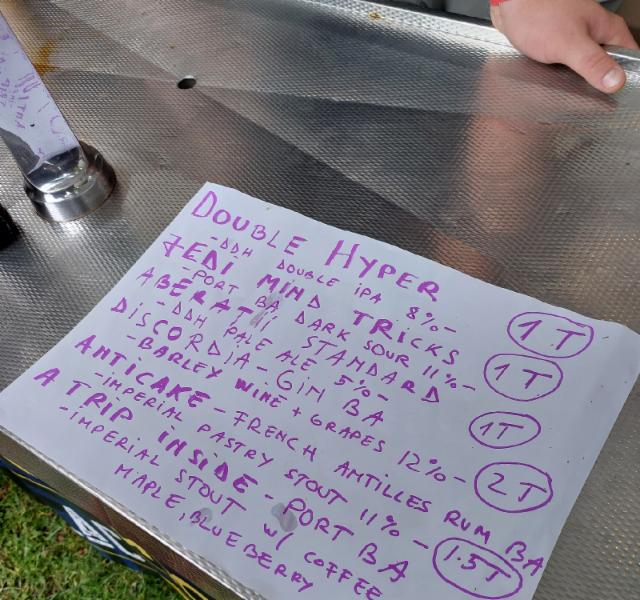 DOUBLE HYPER
-DDH DOUBLE IPA 8%- 1T
JEDI MIND TRICKS
-PORT BA DARK SOUR 11%- 1T
ABERATII STANDARD
-DDH PALE ALE 5%- 1T
DISCORDIA - GIN BA
-BARLEY WINE + GRAPES 12%- 2T
ANTICAKE - FRENCH ANTILLES RUM BA
-IMPERIAL PASTRY STOUT 11%- 1.5T
A TRIP INSIDE - PORT BA
-IMPERIAL STOUT W/ COFFEE
MAPLE, BLUEBERRY